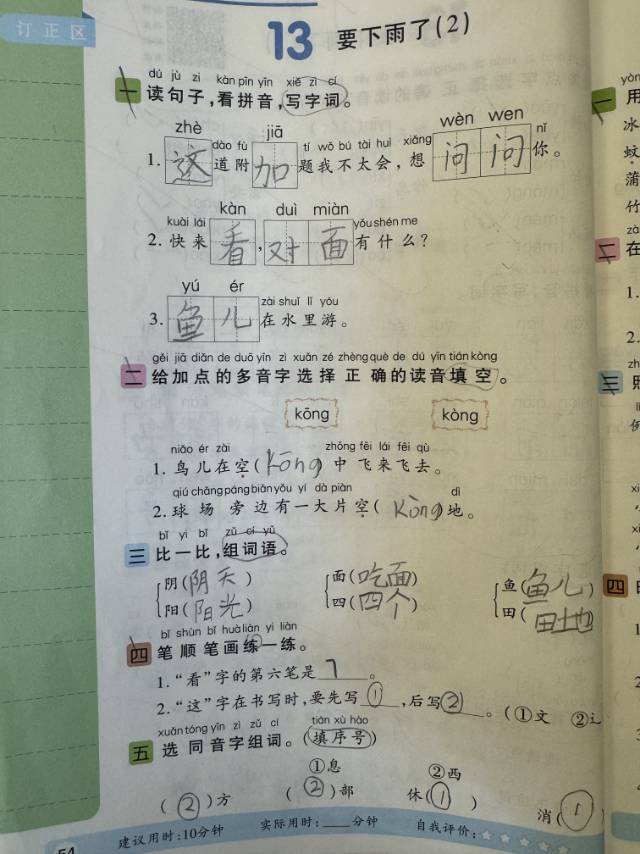 订正区
13 要下雨了(2)
dú jù zi kàn pīn yīn xiě zì cí
一 读句子,看拼音,写字词。
zhè dào fù jiā tí wǒ bú tài huì xiǎng wèn wen nǐ
1. 这道附加题我不太会,想问问你。
kuài lái kàn duì miàn yǒu shén me
2. 快来看,对面有什么?
yú ér zài shuǐ lǐ yóu
3. 鱼儿在水里游。
gěi jiā diǎn de duō yīn zì xuǎn zé zhèng què de dú yīn tián kòng
二 给加点的多音字选择正确的读音填空。
kōng kòng
niǎo ér zài zhōng fēi lái fēi qù
1. 鸟儿在空(kōng)中飞来飞去。
qiú chǎng páng biān yǒu yí dà piàn dì
2. 球场旁边有一大片空(kòng)地。
bǐ yi bǐ zǔ cí yǔ
三 比一比,组词语。
阴(阴天) 面(吃面) 鱼(鱼儿)
阳(阳光) 四(四个) 田(田地)
bǐ shùn bǐ huà liàn yi liàn
四 笔顺笔画练一练。
1. “看”字的第六笔是 ㇆ 。
2. “这”字在书写时,要先写 ① ,后写 ② 。(①文 ②辶
xuǎn tóng yīn zì zǔ cí tián xù hào
五 选同音字组词。(填序号)
①息 ②西
(②)方 (②)部 休(①) 消(①)
54 建议用时:10分钟 实际用时:____分钟 自我评价:
yòn
一 用
冰
蚊
蒲
竹
zà
二 在
1.
2.
三
四